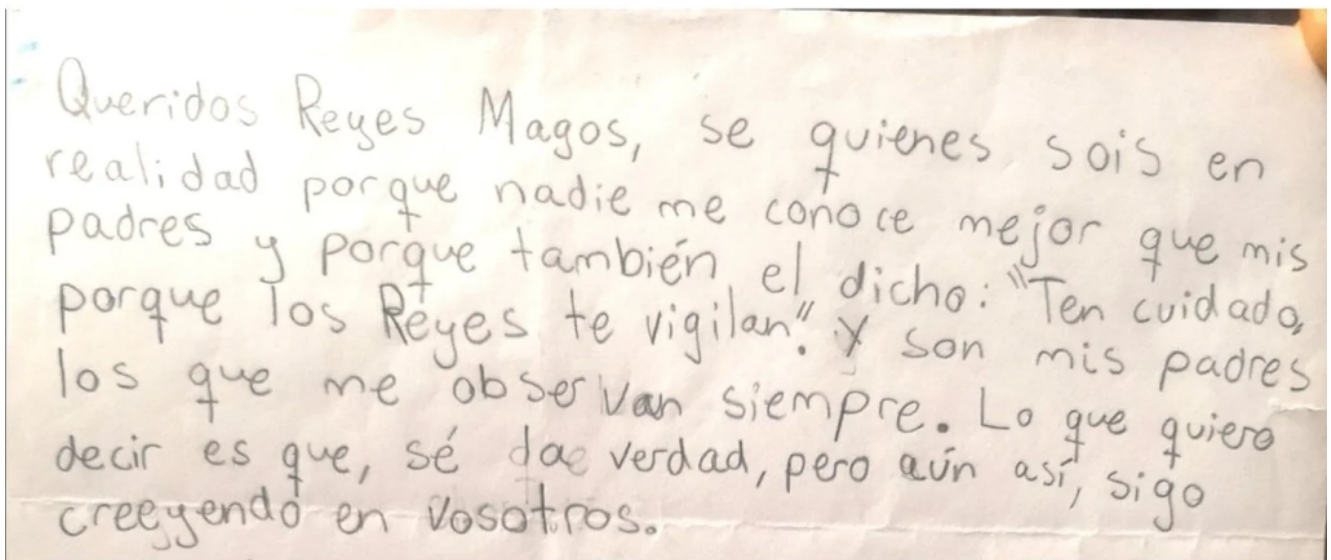 Queridos Reyes Magos, se quienes sois en
realidad porque nadie me conoce mejor que mis
padres y porque también el dicho: "Ten cuidado,
porque los Reyes te vigilan". Y son mis padres
los que me observan siempre. Lo que quiero
decir es que, sé verdad, pero aún así, sigo
creeyendo en vosotros.